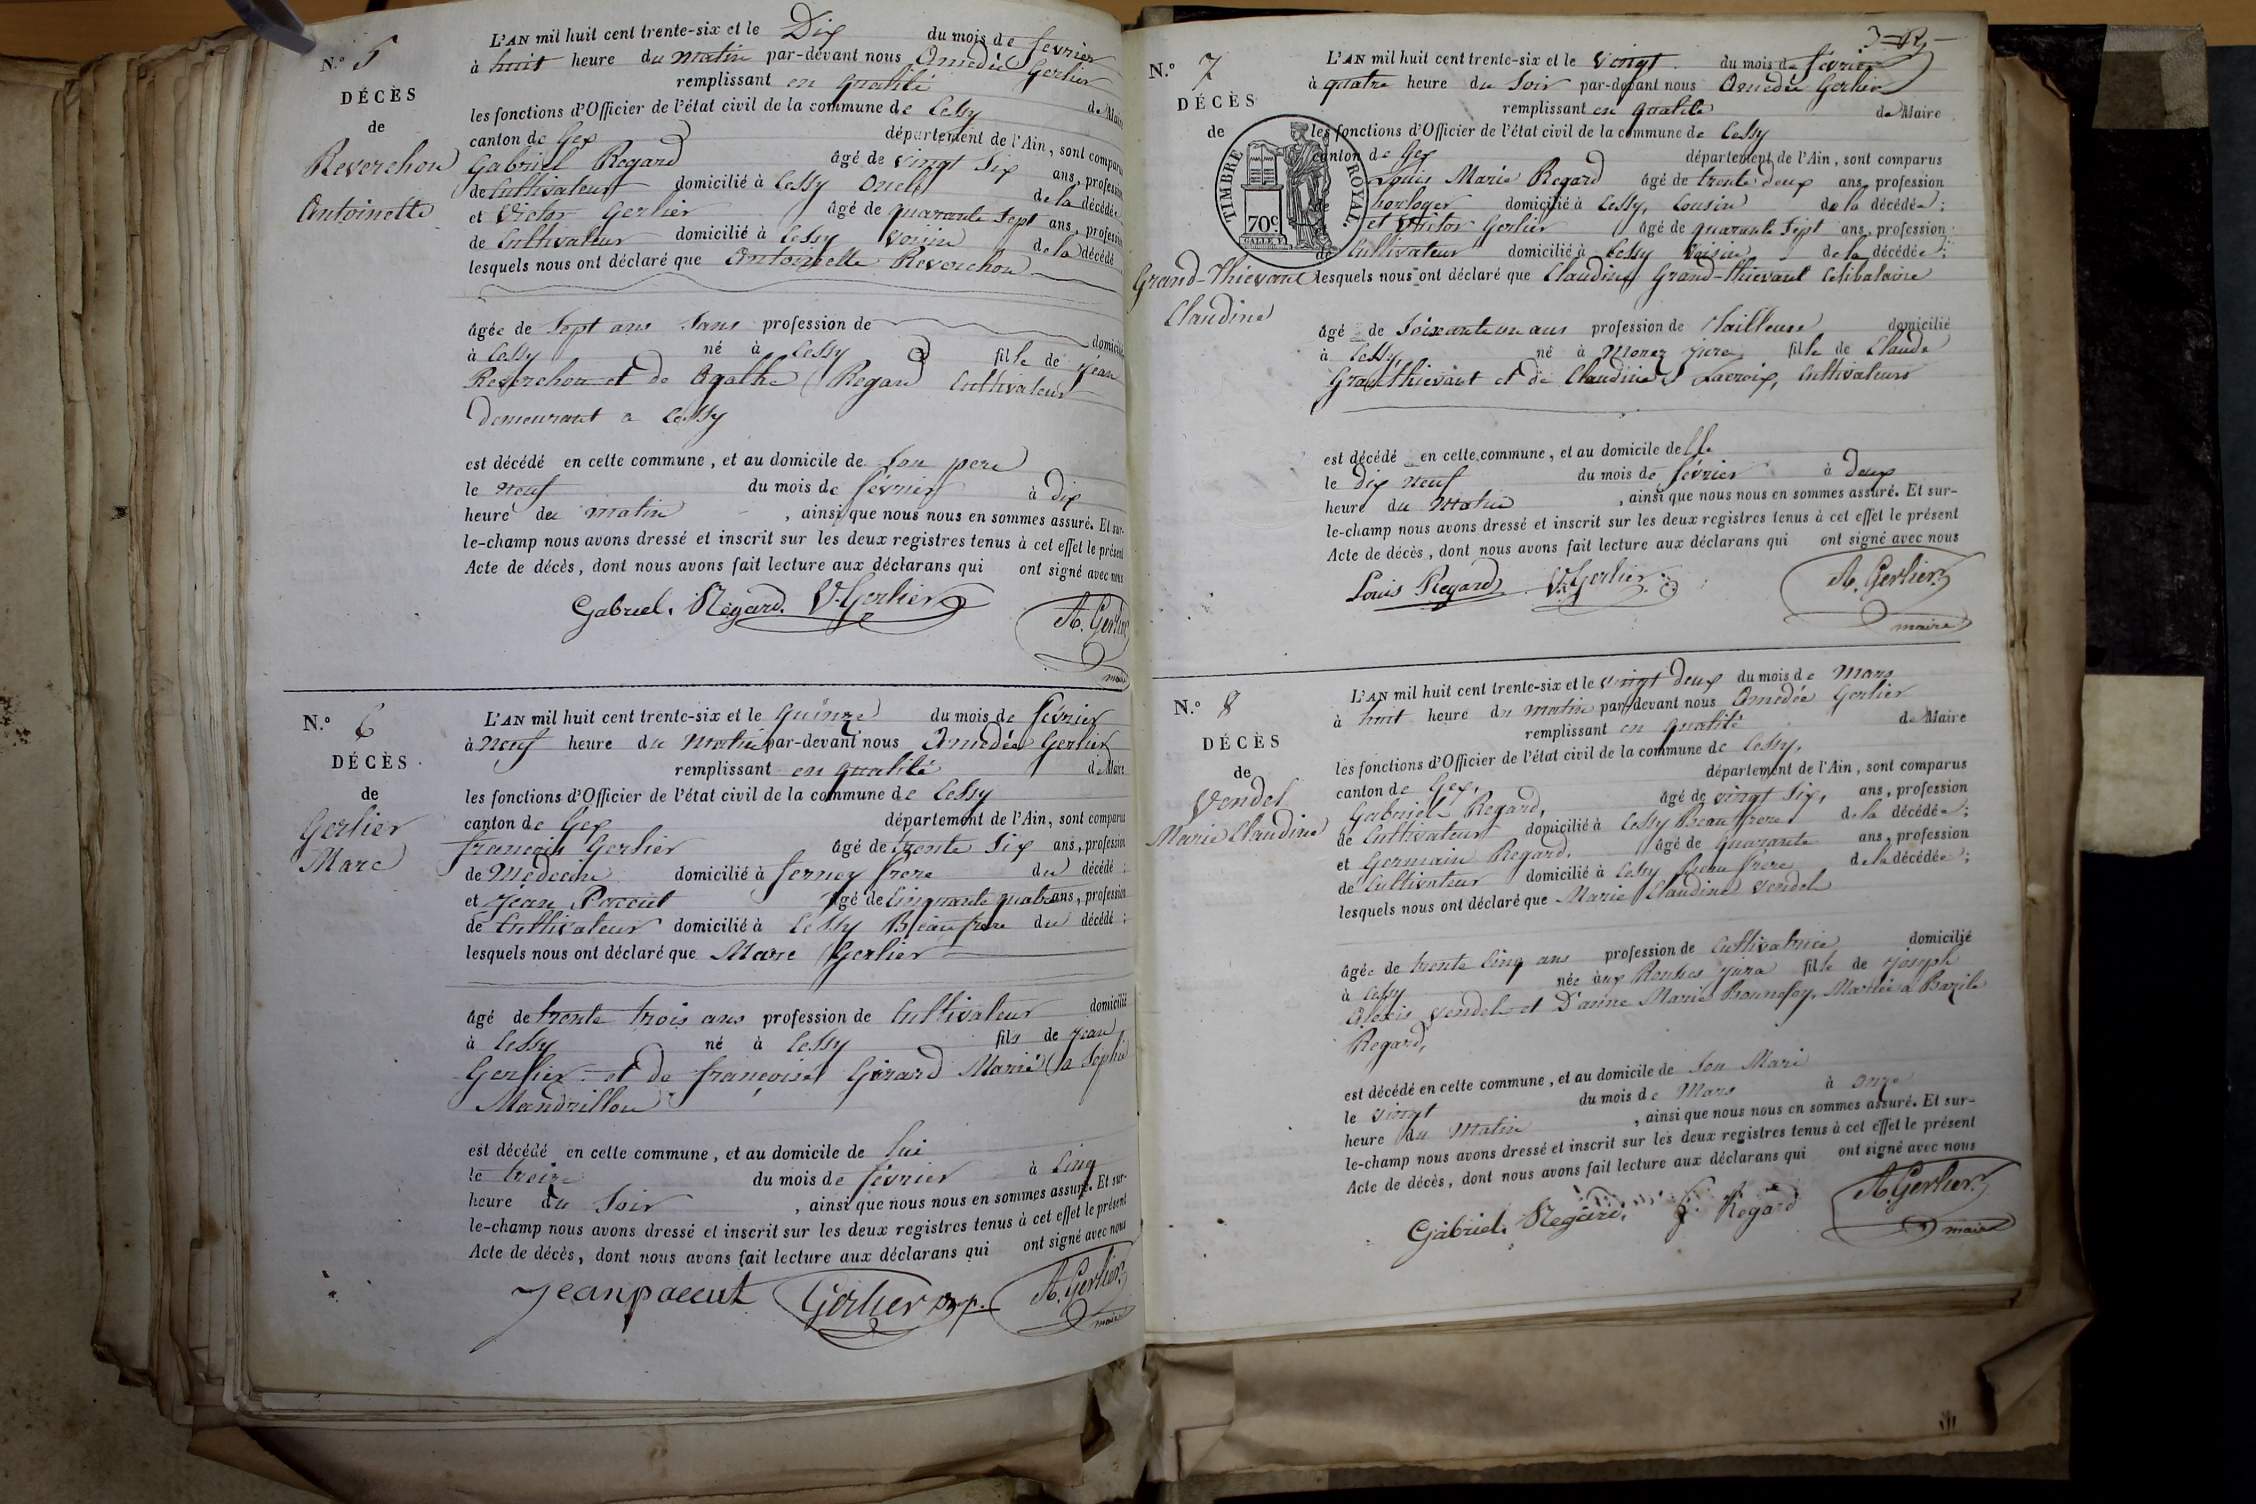 N.o 5
DÉCÈS
de
Reverchon
Antoinette
L'AN mil huit cent trente-six et le Dix du mois de fevrier
à huit heure du matin par-devant nous Amedée Gerlier
remplissant en qualité de Maire
les fonctions d'Officier de l'état civil de la commune de Cessy
canton de Gex département de l'Ain, sont comparus
Gabriel Regard âgé de vingt Six ans, profession
de Cultivateur domicilié à Cessy Oncle de la décédée
et Victor Gerlier âgé de quarante Sept ans, profession
de Cultivateur domicilié à Cessy voisin de la décédé
lesquels nous ont déclaré que Antoinette Reverchon
âgée de Sept ans Sans profession de domicilié
à Cessy né à Cessy fille de jéan
Reverchon et de Agathe Regard Cultivateur
demeurant a Cessy
est décédé en cette commune, et au domicile de Son pere
le neuf du mois de février à dix
heure du matin, ainsi que nous nous en sommes assuré. Et sur-
le-champ nous avons dressé et inscrit sur les deux registres tenus à cet effet le présent
Acte de décès, dont nous avons fait lecture aux déclarans qui ont signé avec nous
Gabriel. Régard. V. Gerlier A. Gerlier
maire
N.o 6
DÉCÈS
de
Gerlier
Marc
L'AN mil huit cent trente-six et le Quinze du mois de février
à Neuf heure du Matin par-devant nous Amedée Gerlier
remplissant en qualité de Maire
les fonctions d'Officier de l'état civil de la commune de Cessy
canton de Gex département de l'Ain, sont comparus
françois Gerlier âgé de trente Six ans, profession
de Médecin domicilié à ferney frere du décédé :
et Jean Paccut âgé de Cinquante quatre ans, profession
de Cultivateur domicilié à Cessy Beaufrere du décédé :
lesquels nous ont déclaré que Marc Gerlier
âgé de trente trois ans profession de Cultivateur domicilié
à Cessy né à Cessy fils de jean
Gerlier et de françoise Girard Marié a Sophie
Mandrillon
est décédé en cette commune, et au domicile de lui
le treize du mois de février à Cinq
heure du Soir, ainsi que nous nous en sommes assuré. Et sur-
le-champ nous avons dressé et inscrit sur les deux registres tenus à cet effet le présent
Acte de décès, dont nous avons fait lecture aux déclarans qui ont signé avec nous
jeanpaccut Gerlier A. Gerlier
maire
N.o 7
DÉCÈS
de
TIMBRE ROYAL.
70c.
Grand-Thievant
Claudine
L'AN mil huit cent trente-six et le vingt du mois de février
à quatre heure du Soir par-devant nous Amedée Gerlier
remplissant en qualité de Maire
les fonctions d'Officier de l'état civil de la commune de Cessy
canton de Gex département de l'Ain, sont comparus
Louis Marie Regard âgé de trente deux ans, profession
de horloger domicilié à Cessy, Cousin de la décédée ;
et Victor Gerlier âgé de quarante Sept ans, profession
de Cultivateur domicilié à Cessy Voisin de la décédée ;
lesquels nous ont déclaré que Claudine Grand-thievant Celibataire
âgé de Soixante un ans profession de tailleuse domicilié
à Cessy né à Morez jura fille de Claude
Grandthievant et de Claudine Lacroix, Cultivateurs
est décédé en cette commune, et au domicile de Elle
le dix neuf du mois de février à deux
heure du Matin, ainsi que nous nous en sommes assuré. Et sur-
le-champ nous avons dressé et inscrit sur les deux registres tenus à cet effet le présent
Acte de décès, dont nous avons fait lecture aux déclarans qui ont signé avec nous
Louis Regard V. Gerlier A. Gerlier
maire
N.o 8
DÉCÈS
de
Vendel
Marie Claudine
L'AN mil huit cent trente-six et le vingt deux du mois de Mars
à huit heure du matin par-devant nous Amedée Gerlier
remplissant en qualité de Maire
les fonctions d'Officier de l'état civil de la commune de Cessy,
canton de Gex, département de l'Ain, sont comparus
Gabriel Regard, âgé de vingt Six, ans, profession
de Cultivateur domicilié à Cessy Beaufrere de la décédée ;
et Germain Regard, âgé de Quarante ans, profession
de Cultivateur domicilié à Cessy Beau frere de la décédée ;
lesquels nous ont déclaré que Marie Claudine vendel
âgée de trente Cinq ans profession de Cultivatrice domicilié
à Cessy née aux Rousses jura fille de joseph
Alexis vendel et D'anne Marie Bonnefoy, Mariée a Bazile
Regard,
est décédé en cette commune, et au domicile de Son Mari
le vingt du mois de Mars à onze
heure du Matin, ainsi que nous nous en sommes assuré. Et sur-
le-champ nous avons dressé et inscrit sur les deux registres tenus à cet effet le présent
Acte de décès, dont nous avons fait lecture aux déclarans qui ont signé avec nous
Gabriel. Régard. G. Regard A. Gerlier
maire